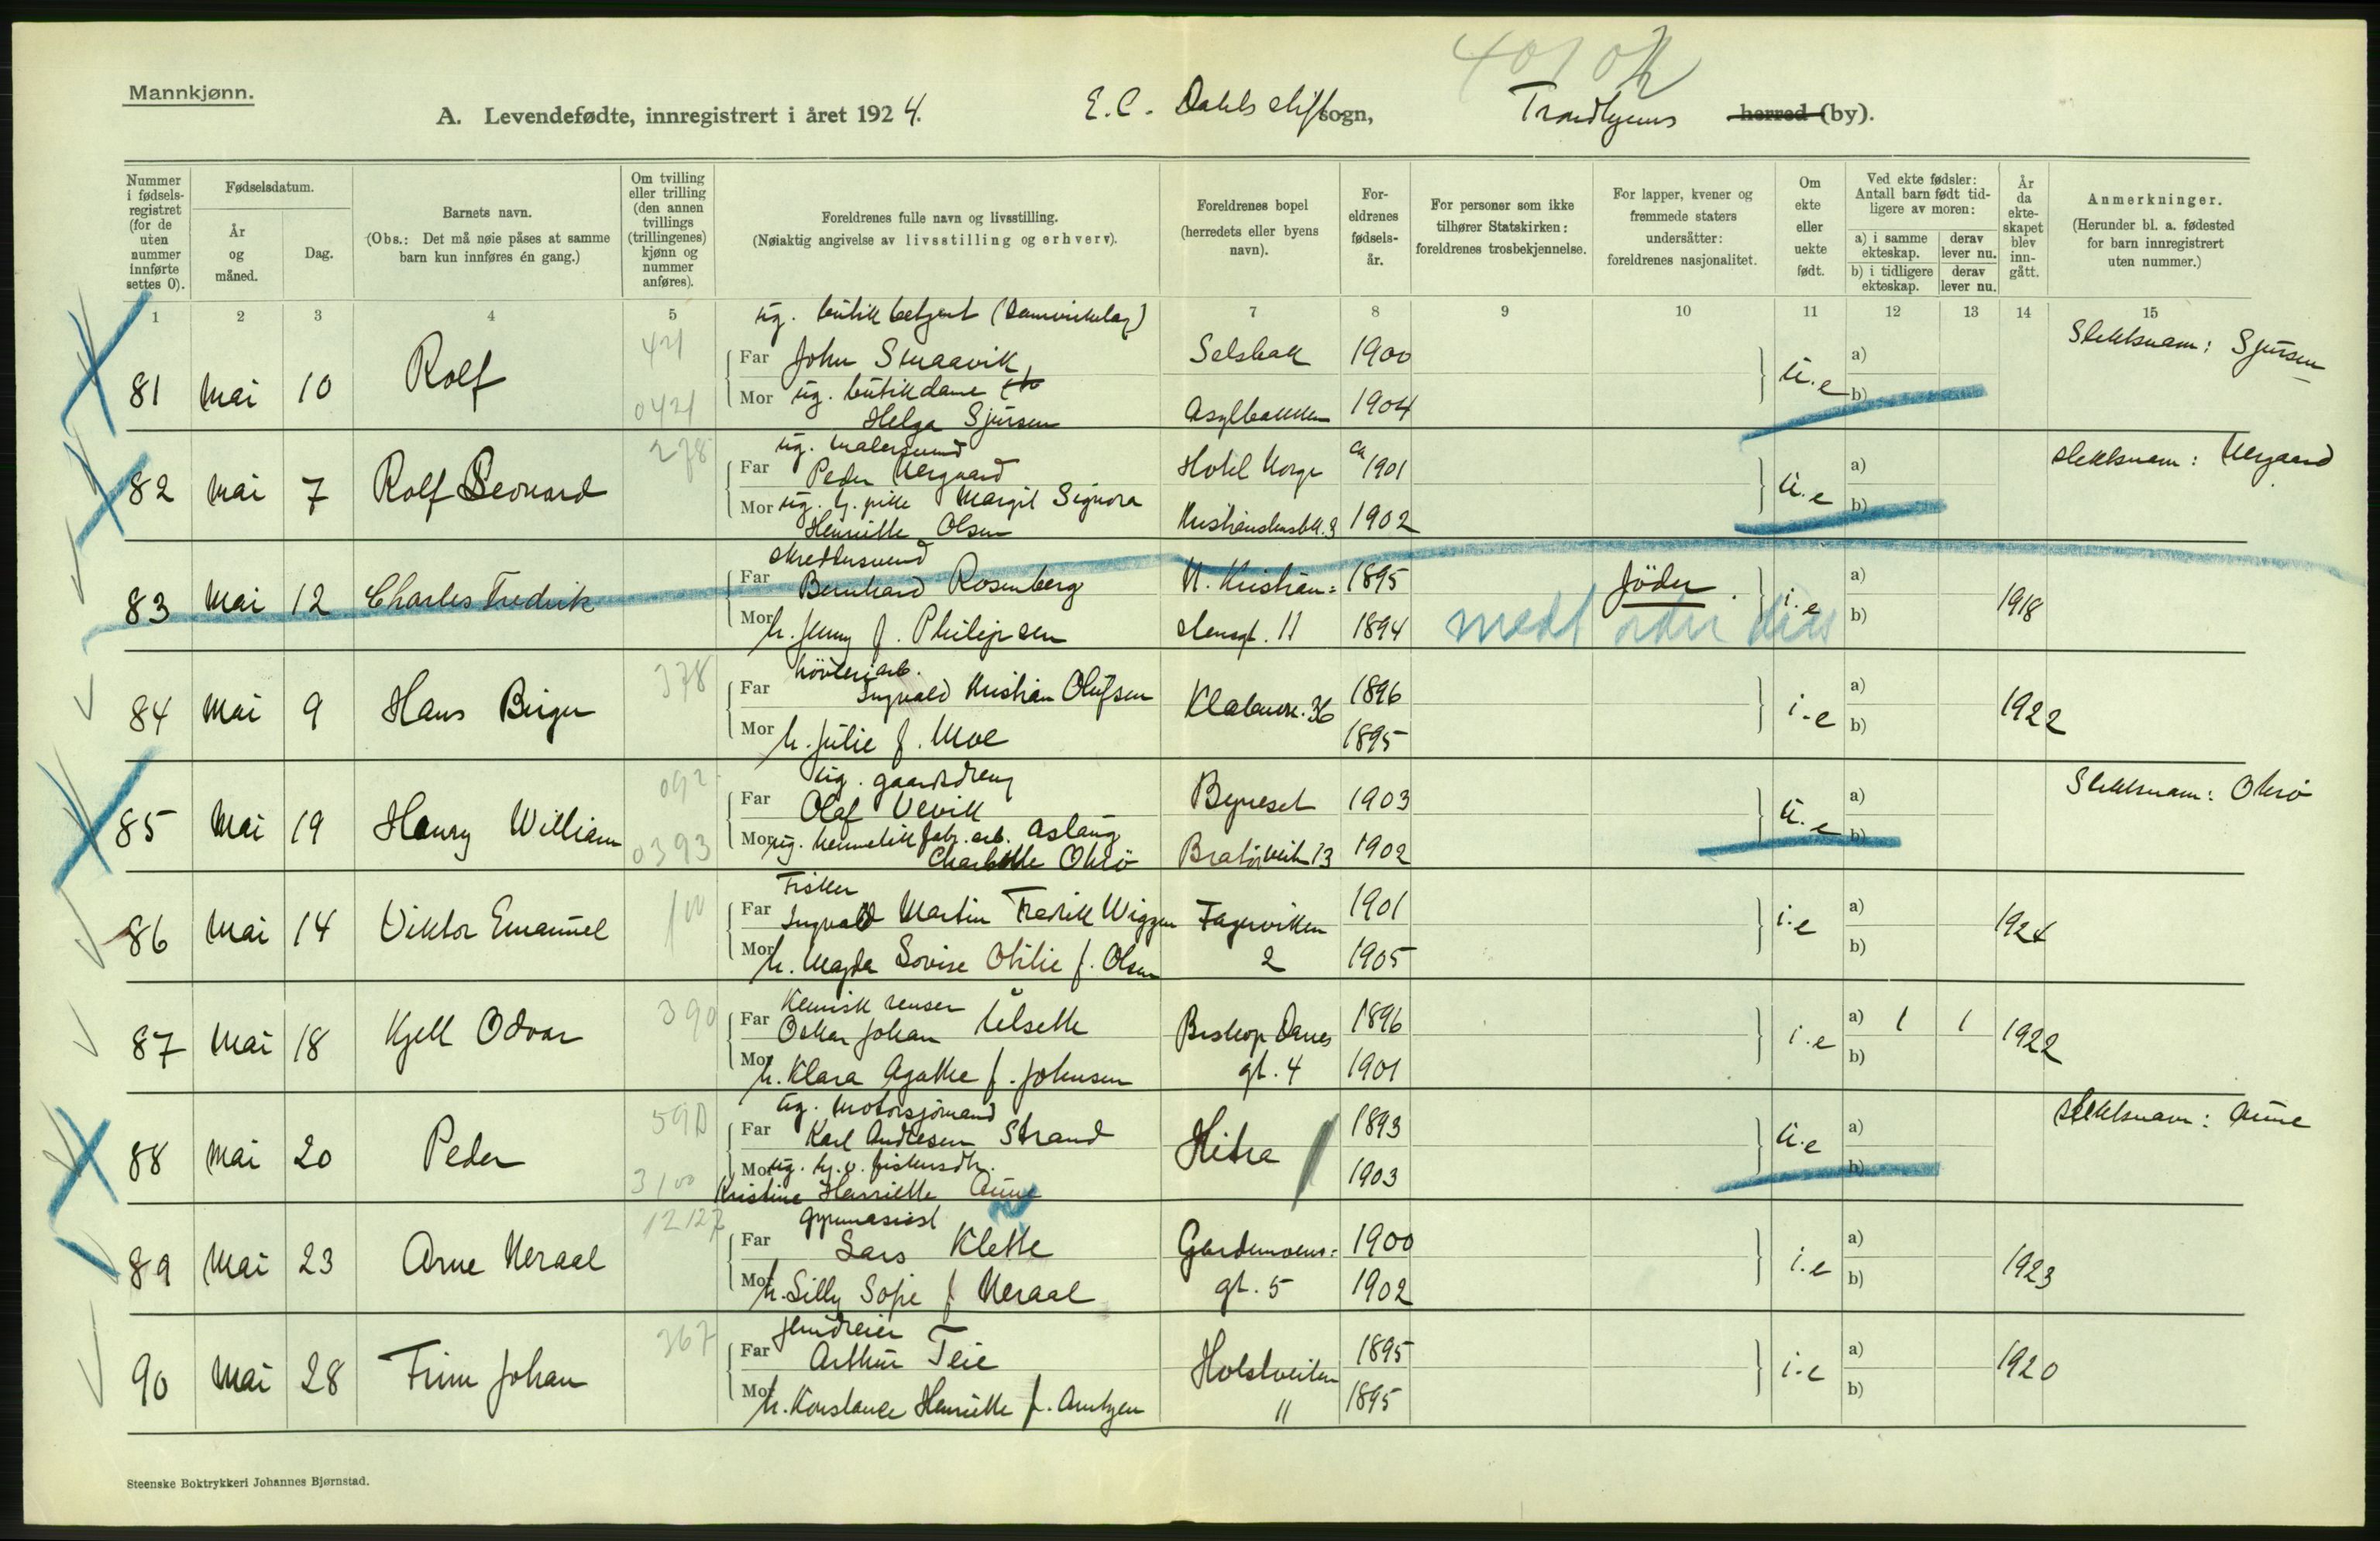 Mannkjønn.
A. Levendefødte, innregistrert i året 1924. E. C. Dahls stift sogn, Trondhjems herred (by).
Nummer i fødselsregistret (for de uten nummer innførte settes 0).
Fødselsdatum.
År og måned.
Dag.
Barnets navn.
(Obs.: Det må nøie påses at samme barn kun innføres én gang.)
Om tvilling eller trilling (den annen tvillings (trillingenes) kjønn og nummer anføres).
Foreldrenes fulle navn og livsstilling.
(Nøiaktig angivelse av livsstilling og erhverv).
Foreldrenes bopel (herredets eller byens navn).
Foreldrenes fødselsår.
For personer som ikke tilhører Statskirken: foreldrenes trosbekjennelse.
For lapper, kvener og fremmede staters undersåtter: foreldrenes nasjonalitet.
Om ekte eller uekte født.
Ved ekte fødsler: Antall barn født tidligere av moren:
a) i samme ekteskap. derav lever nu.
b) i tidligere ekteskap. derav lever nu.
År da ekteskapet blev inngått.
Anmerkninger.
(Herunder bl. a. fødested for barn innregistrert uten nummer.)
1 2 3 4 5 7 8 9 10 11 12 13 14 15
ug. butikbetjent (Samvirkelag)
421
81 Mai 10 Rolf Far John Smaavik Selsbak 1900 u.e a) Slektsnam: Sjursen
0421 Mor ug. butikdame
Helga Sjursen Asylbakken 1904 b)
278 ug. malersvend
82 Mai 7 Rolf Leonard Far Peder Nergaard Hotel Norge ca 1901 u.e a) slektsnam: Nergaard
Mor ug. hj. pike Margit Signora
Henriette Olsen 1902 b)
skreddersvend
83 Mai 12 Charles Fredrik Far Bernhard Rosenberg N. Kristian= 1895 Jöder. i.e a) 1918
Mor h. Jenny f. Philipsen stensgt. 11 1894 b)
378 hövleriarb.
84 Mai 9 Hans Birger Far Ingvald Kristian Olufsen Klæbuv. 36 1896 i.e a) 1922
Mor h. Julie f. Moe 1895 b)
092 ug. gaardsdreng
85 Mai 19 Henry William Far Olaf Vevik Byneset 1903 u.e a) Slektsnam: Oksö
0393 Mor ug. hermetikfabr. arb. Aslaug
Charlotte Oksö 13 1902 b)
100 Fisker
86 Mai 14 Viktor Emanuel Far Ingvald Martin Fredrik Wiggen Fagerviken 1901 i.e a) 1924
Mor h. Magda Lovise Otilie f. Olsen 2 1905 b)
390 Kemisk renser
87 Mai 18 Kjell Odvar Far Oskar Johan Ulseth Biskop Dares 1896 i.e a) 1 1 1922
Mor h. Klara Agathe f. Johnsen gt. 4 1901 b)
ug. motorsjömand
88 Mai 20 Peder Far Karl Andresen Strand Hitra 1893 u.e a) slektsnam: Aune
3100 Mor ug. hj. v. fiskersdtr.
Kristine Henriette Aune 1903 b)
gymnasiast
89 Mai 23 Arne Meraal Far Lars Klette Gardemoens= 1900 i.e a) 1923
Mor h. Lilly Sofie f Meraal gt. 5 1902 b)
367 Jerndreier
90 Mai 28 Finn Johan Far Arthur Teie Holstveiten 1895 i.e a) 1920
Mor h. Konstance Henriette f. Arntzen 11 1895 b)
Steenske Boktrykkeri Johannes Bjørnstad.